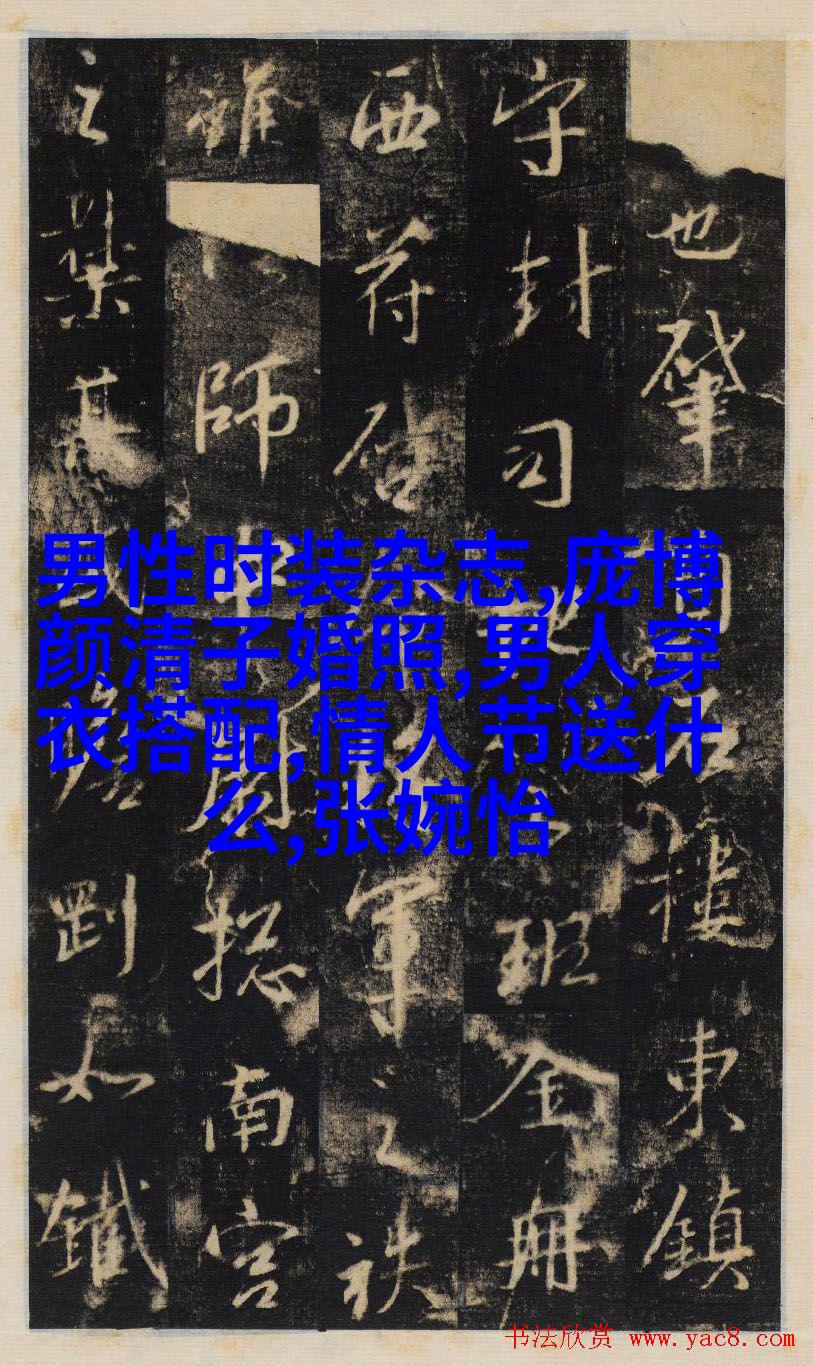 也肇石樓東鎮
守封司班金冊
西符啓軍之秩
雖師中摠南宮
之葉基如鐵
男性时装杂志,庞博
颜清子婚照,男人穿
衣搭配,情人节送什
么,张婉怡
书法欣赏 www.yac8.com